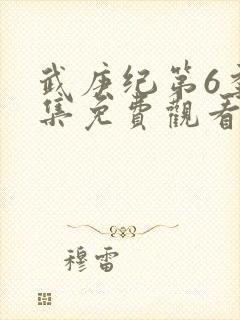 武庚纪第6季
集免費觀看
穆雷